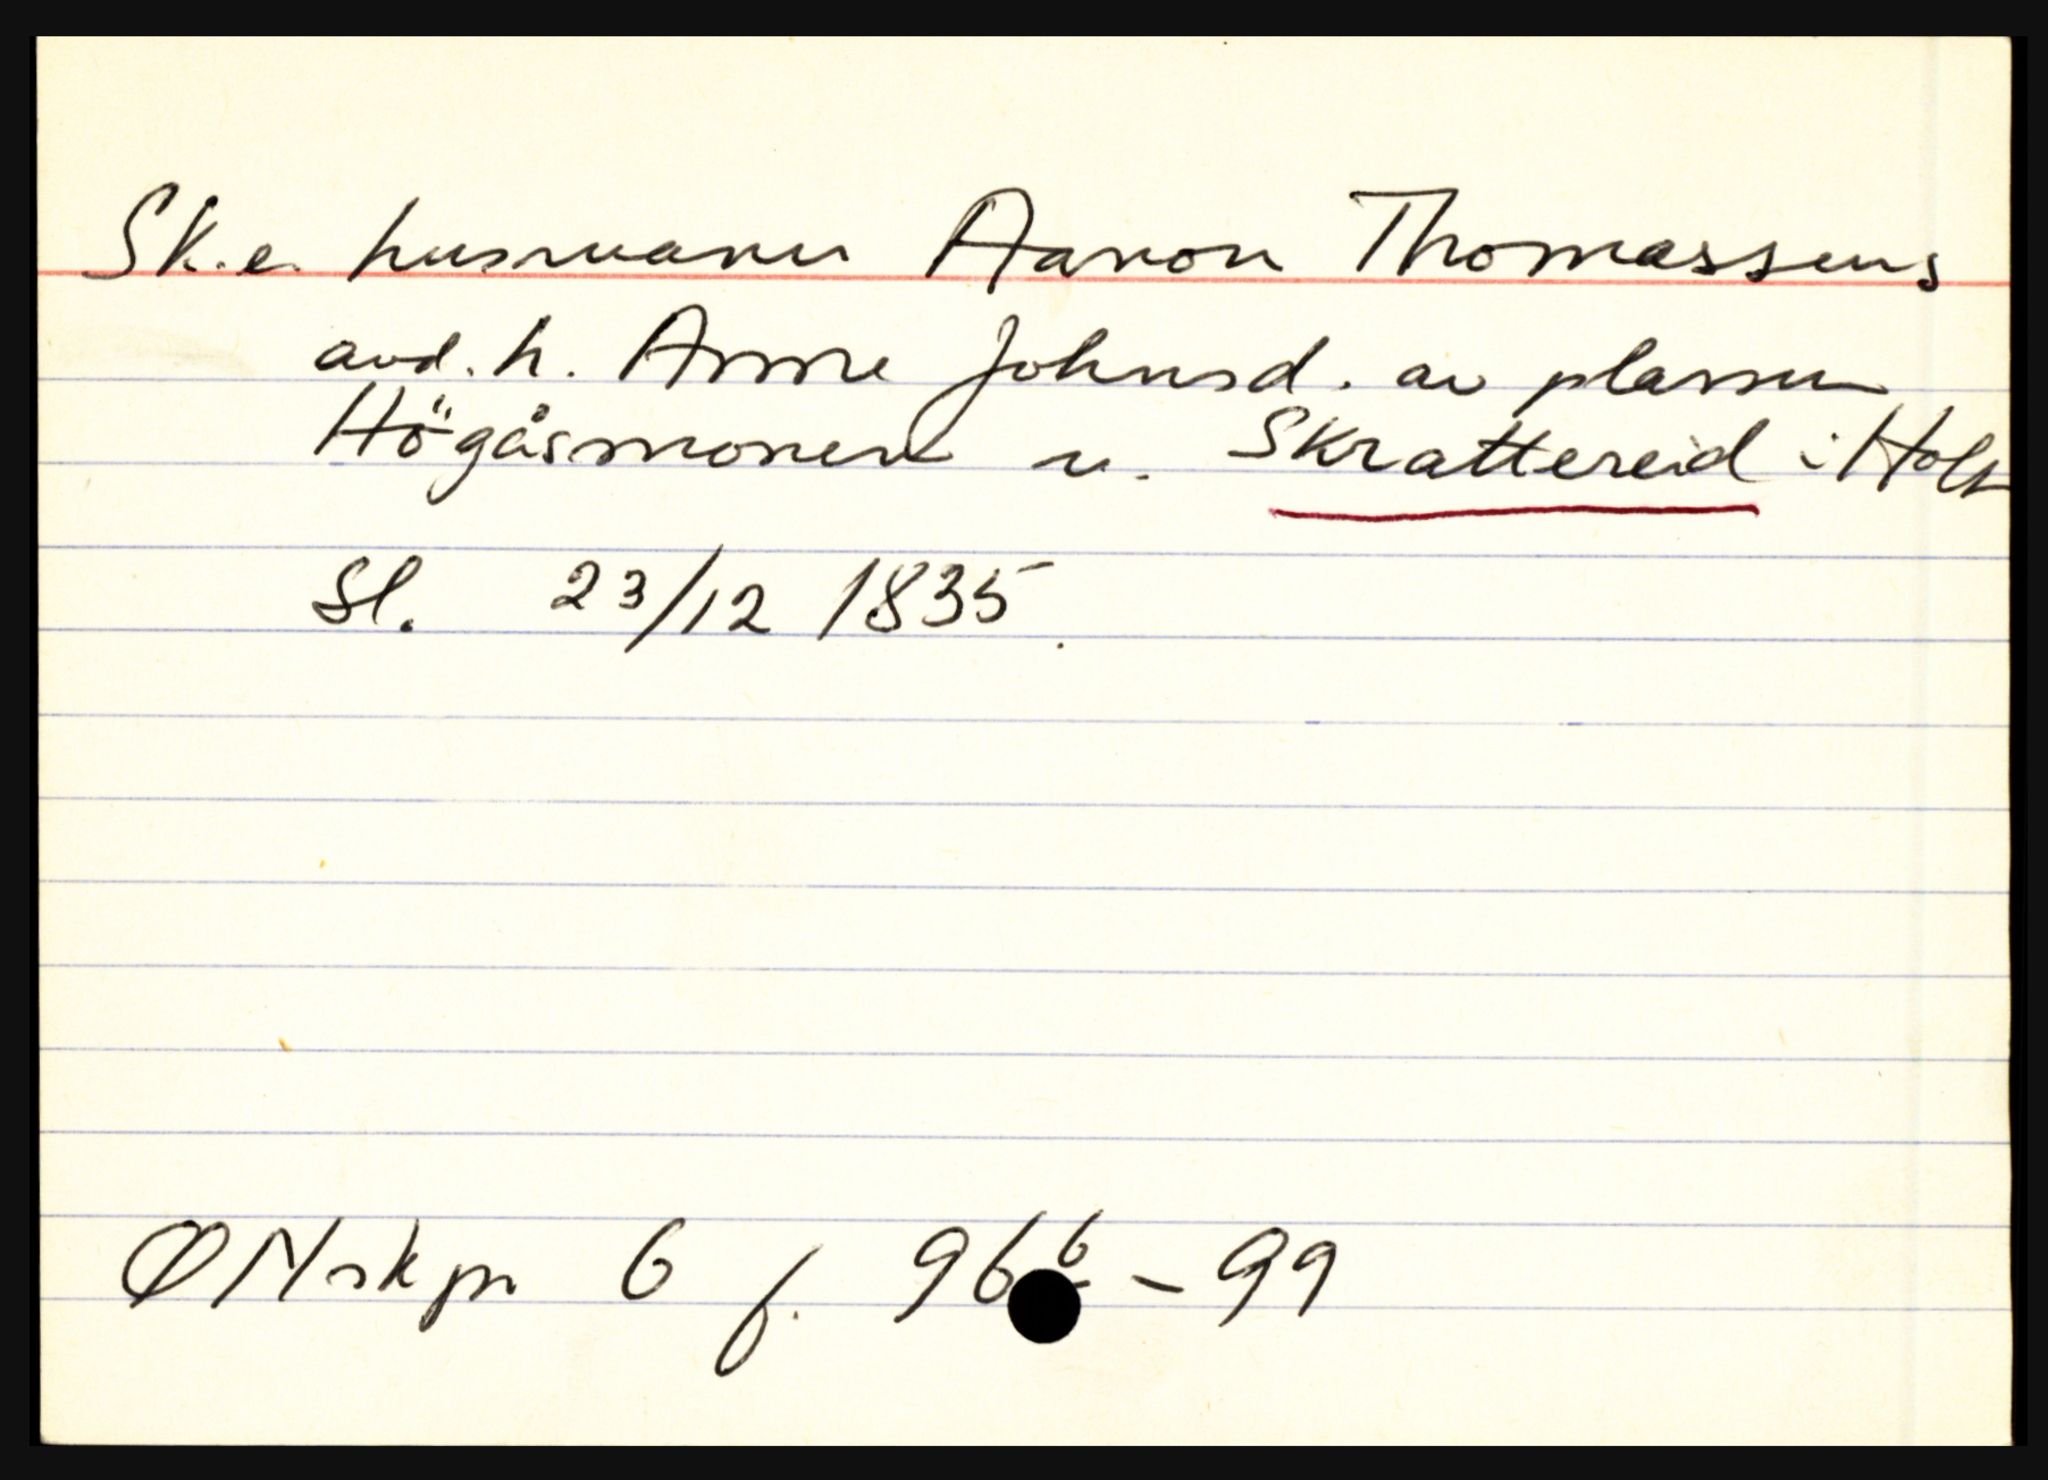 Sk.e. husmann Aanon Thomassens
avd. h. Anne Johnsd. av plassen
Högåsmonen u. Skrattereid i Holt
Sl. 23/12 1835.
ØNskpr 6 f. 96b - 99